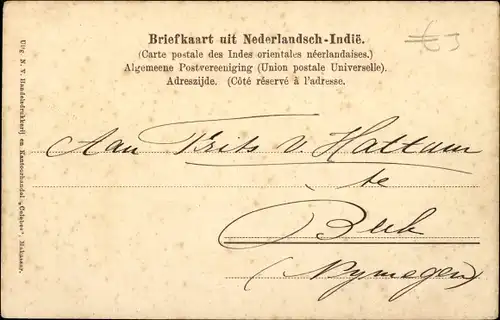 Briefkaart uit Nederlandsch-Indië.
(Carte postale des Indes orientales néerlandaises.)
Algemeene Postvereeniging (Union postale Universelle).
Adreszijde. (Côté réservé à l'adresse.
Aan Frits v. Hattum
te
Beek
(Nymegen)
Uitg. N. V. Handelsdrukkerij en Kantoorhandel „Celebes", Makasser.